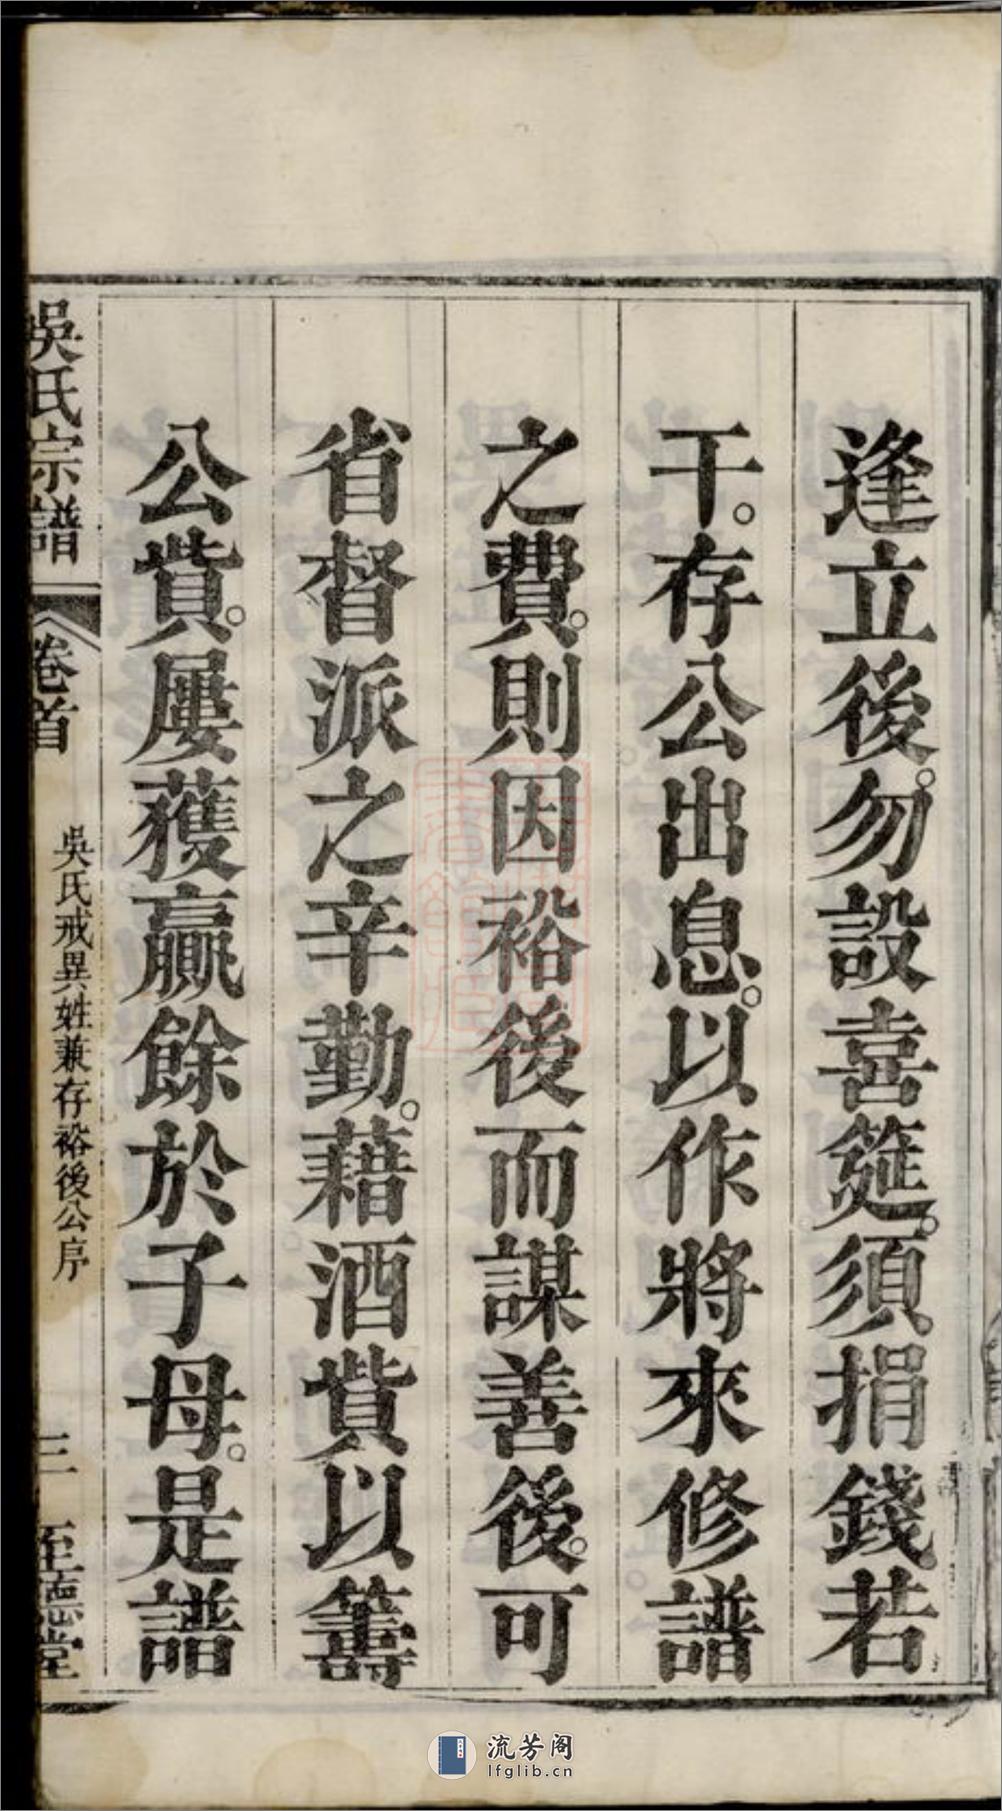 逢立後。勿設喜筵。須捐錢若
干。存公出息。以作將來修譜
之費。則因裕後而謀善後。可
省督派之辛勤。藉酒貲以籌
公貲。屢獲贏餘於子母。是譜
吳氏宗譜
卷首
吳氏戒異姓兼存裕後公序
三
至德堂
流芳阁
lfglib.cn